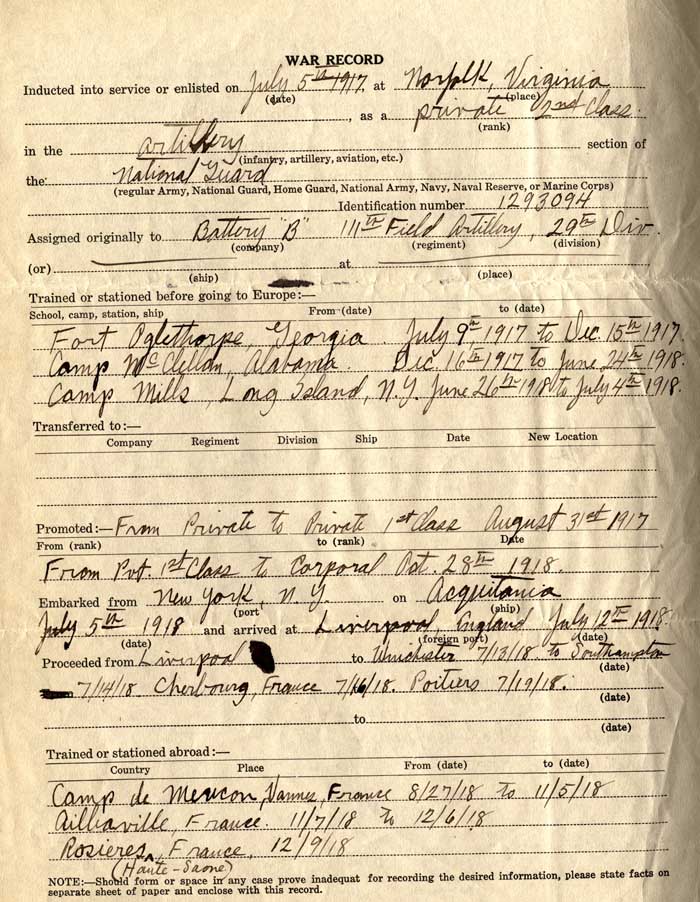 WAR RECORD
Inducted into service or enlisted on July 5th 1917 at Norfolk, Virginia
(date) (place)
, as a private 2nd Class.
(rank)
in the artillery section of
(infantry, artillery, aviation, etc.)
the National Guard
(regular Army, National Guard, Home Guard, National Army, Navy, Naval Reserve, or Marine Corps)
Identification number 1293094
Assigned originally to Battery "B" 111th Field Artillery, 29th Div.
(company) (regiment) (division)
(or) at
(ship) (place)
Trained or stationed before going to Europe:—
School, camp, station, ship From (date) to (date)
Fort Oglethorpe, Georgia. July 9th, 1917 to Dec. 15th 1917.
Camp McClellan, Alabama. Dec. 16th 1917 to June 24th 1918.
Camp Mills, Long Island, N.Y. June 26th 1918 to July 4th 1918.
Transferred to:—
Company Regiment Division Ship Date New Location
Promoted:—From Private to Private 1st Class August 31st 1917
From (rank) to (rank) Date
From Pvt. 1st Class to Corporal Oct. 28th 1918.
Embarked from New York, N.Y on Acquitania
(port (ship)
July 5th 1918 and arrived at Liverpool, England July 12th 1918.
(date) (foreign port) (date)
Proceeded from Liverpool to Winchester 7/13/18 to Southampton
(date)
7/14/18 Cherbourg, France 7/16/18. Poitiers 7/19/18.
(date)
to
(date)
Trained or stationed abroad:—
Country Place From (date) to (date)
Camp de Meucon, Vannes, France 8/27/18 to 11/5/18
Aillianville, France. 11/7/18 to 12/6/18
Rosieres, France, 12/9/18
(Haute-Saone)
NOTE:—Should form or space in any case prove inadequat for recording the desired information, please state facts on
separate sheet of paper and enclose with this record.